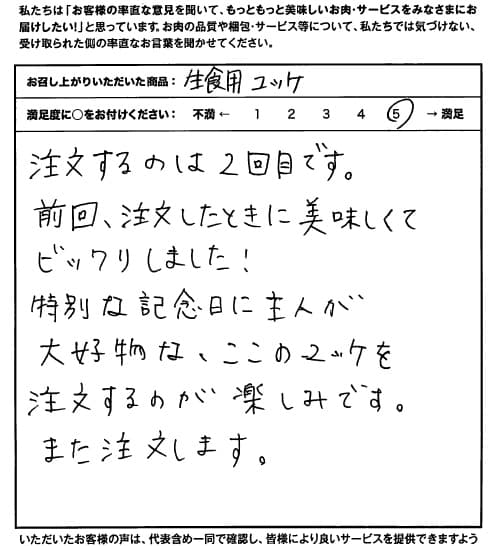 私たちは「お客様の率直な意見を聞いて、もっともっと美味しいお肉・サービスをみなさまにお
届けしたい!」と思っています。お肉の品質や梱包・サービス等について、私たちでは気づけない、
受け取られた側の率直なお言葉を聞かせてください。
お召し上がりいただいた商品: 生食用ユッケ
満足度に○をお付けください: 不満 ← 1 2 3 4 5 → 満足
注文するのは2回目です。
前回、注文したときに美味しくて
ビックリしました!
特別な記念日に主人が
大好物な、ここのユッケを
注文するのが楽しみです。
また注文します。
いただいたお客様の声は、代表含め一同で確認し、皆様により良いサービスを提供できますよう